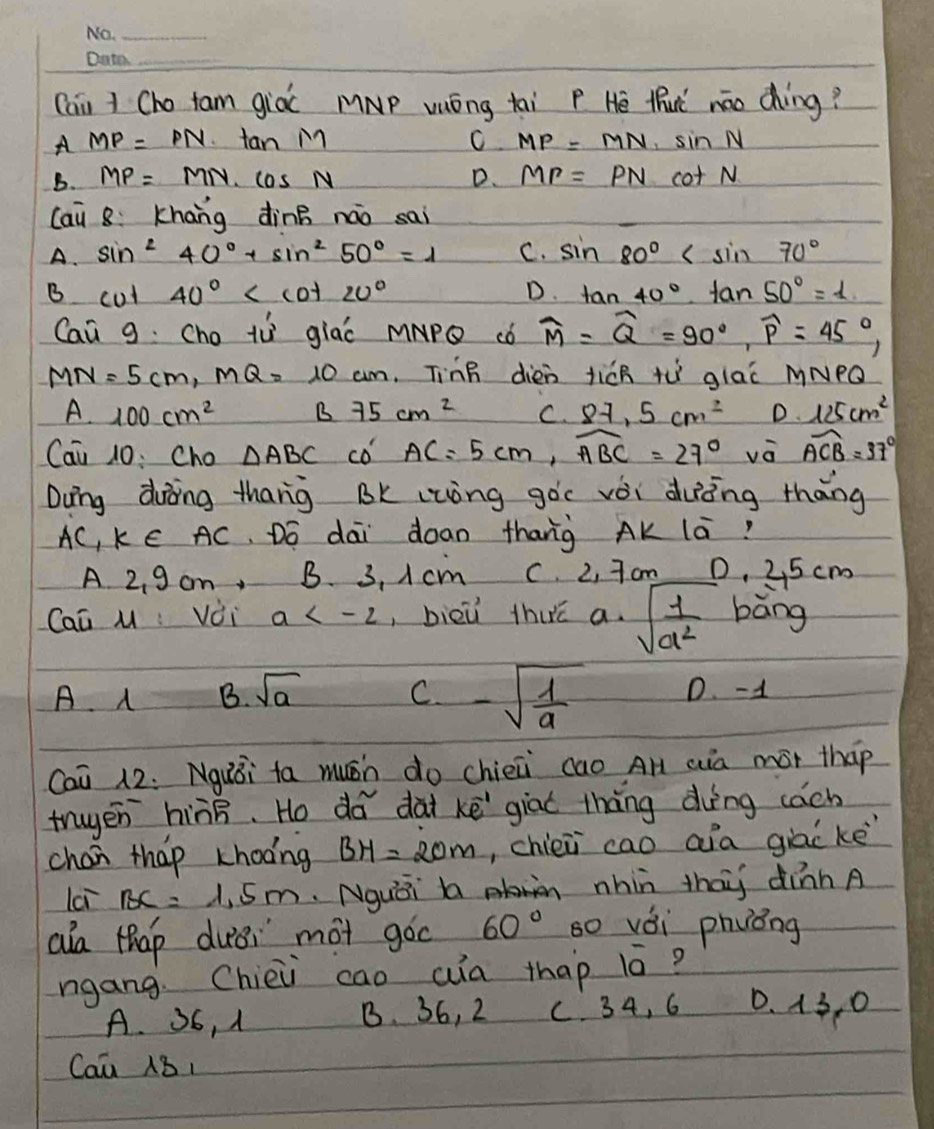 No.
Date.
Câu 7 Cho tam giác MNP vuông tại P Hệ thức nào đúng?
A MP = PN. tan M C. MP = MN. sin N
B. MP = MN. cos N D. MP = PN cot N
Câu 8: Khẳng định nào sai
A. sin² 40° + sin² 50° = 1 C. sin 80° < sin 70°
B cot 40° < cot 20° D. tan 40°. tan 50° = 1.
Câu 9: Cho tứ giác MNPQ có M̂ = Q̂ = 90°, P̂ = 45°,
MN = 5 cm, MQ = 10 cm. Tính diện tích tứ giác MNPQ
A. 100 cm² B 75 cm² C. 87,5 cm² D. 125 cm²
Câu 10: Cho ΔABC có AC = 5 cm, ABC = 27° và ACB = 37°
Dựng đường thẳng BK vuông góc với đường thẳng
AC, K ∈ AC. Độ dài đoạn thẳng AK là?
A 2,9 cm, B. 3,1 cm C. 2,7 cm D. 2,5 cm
Câu 11: Với a < -2, biểu thức a. √(1/a²) bằng
A. 1 B. √a C. -√(1/a) D. -1
Câu 12: Người ta muốn đo chiều cao AH của một tháp
truyền hình. Họ đã đặt kế giác thẳng đứng cách
chân tháp khoảng BH = 20m, chiều cao của giác kế
là BC = 1,5 m. Người ta nhìn thấy đỉnh A
của tháp dưới một góc 60° so với phương
ngang. Chiều cao của tháp là?
A. 36,1 B. 36,2 C. 34,6 D. 13,0
Câu 13: